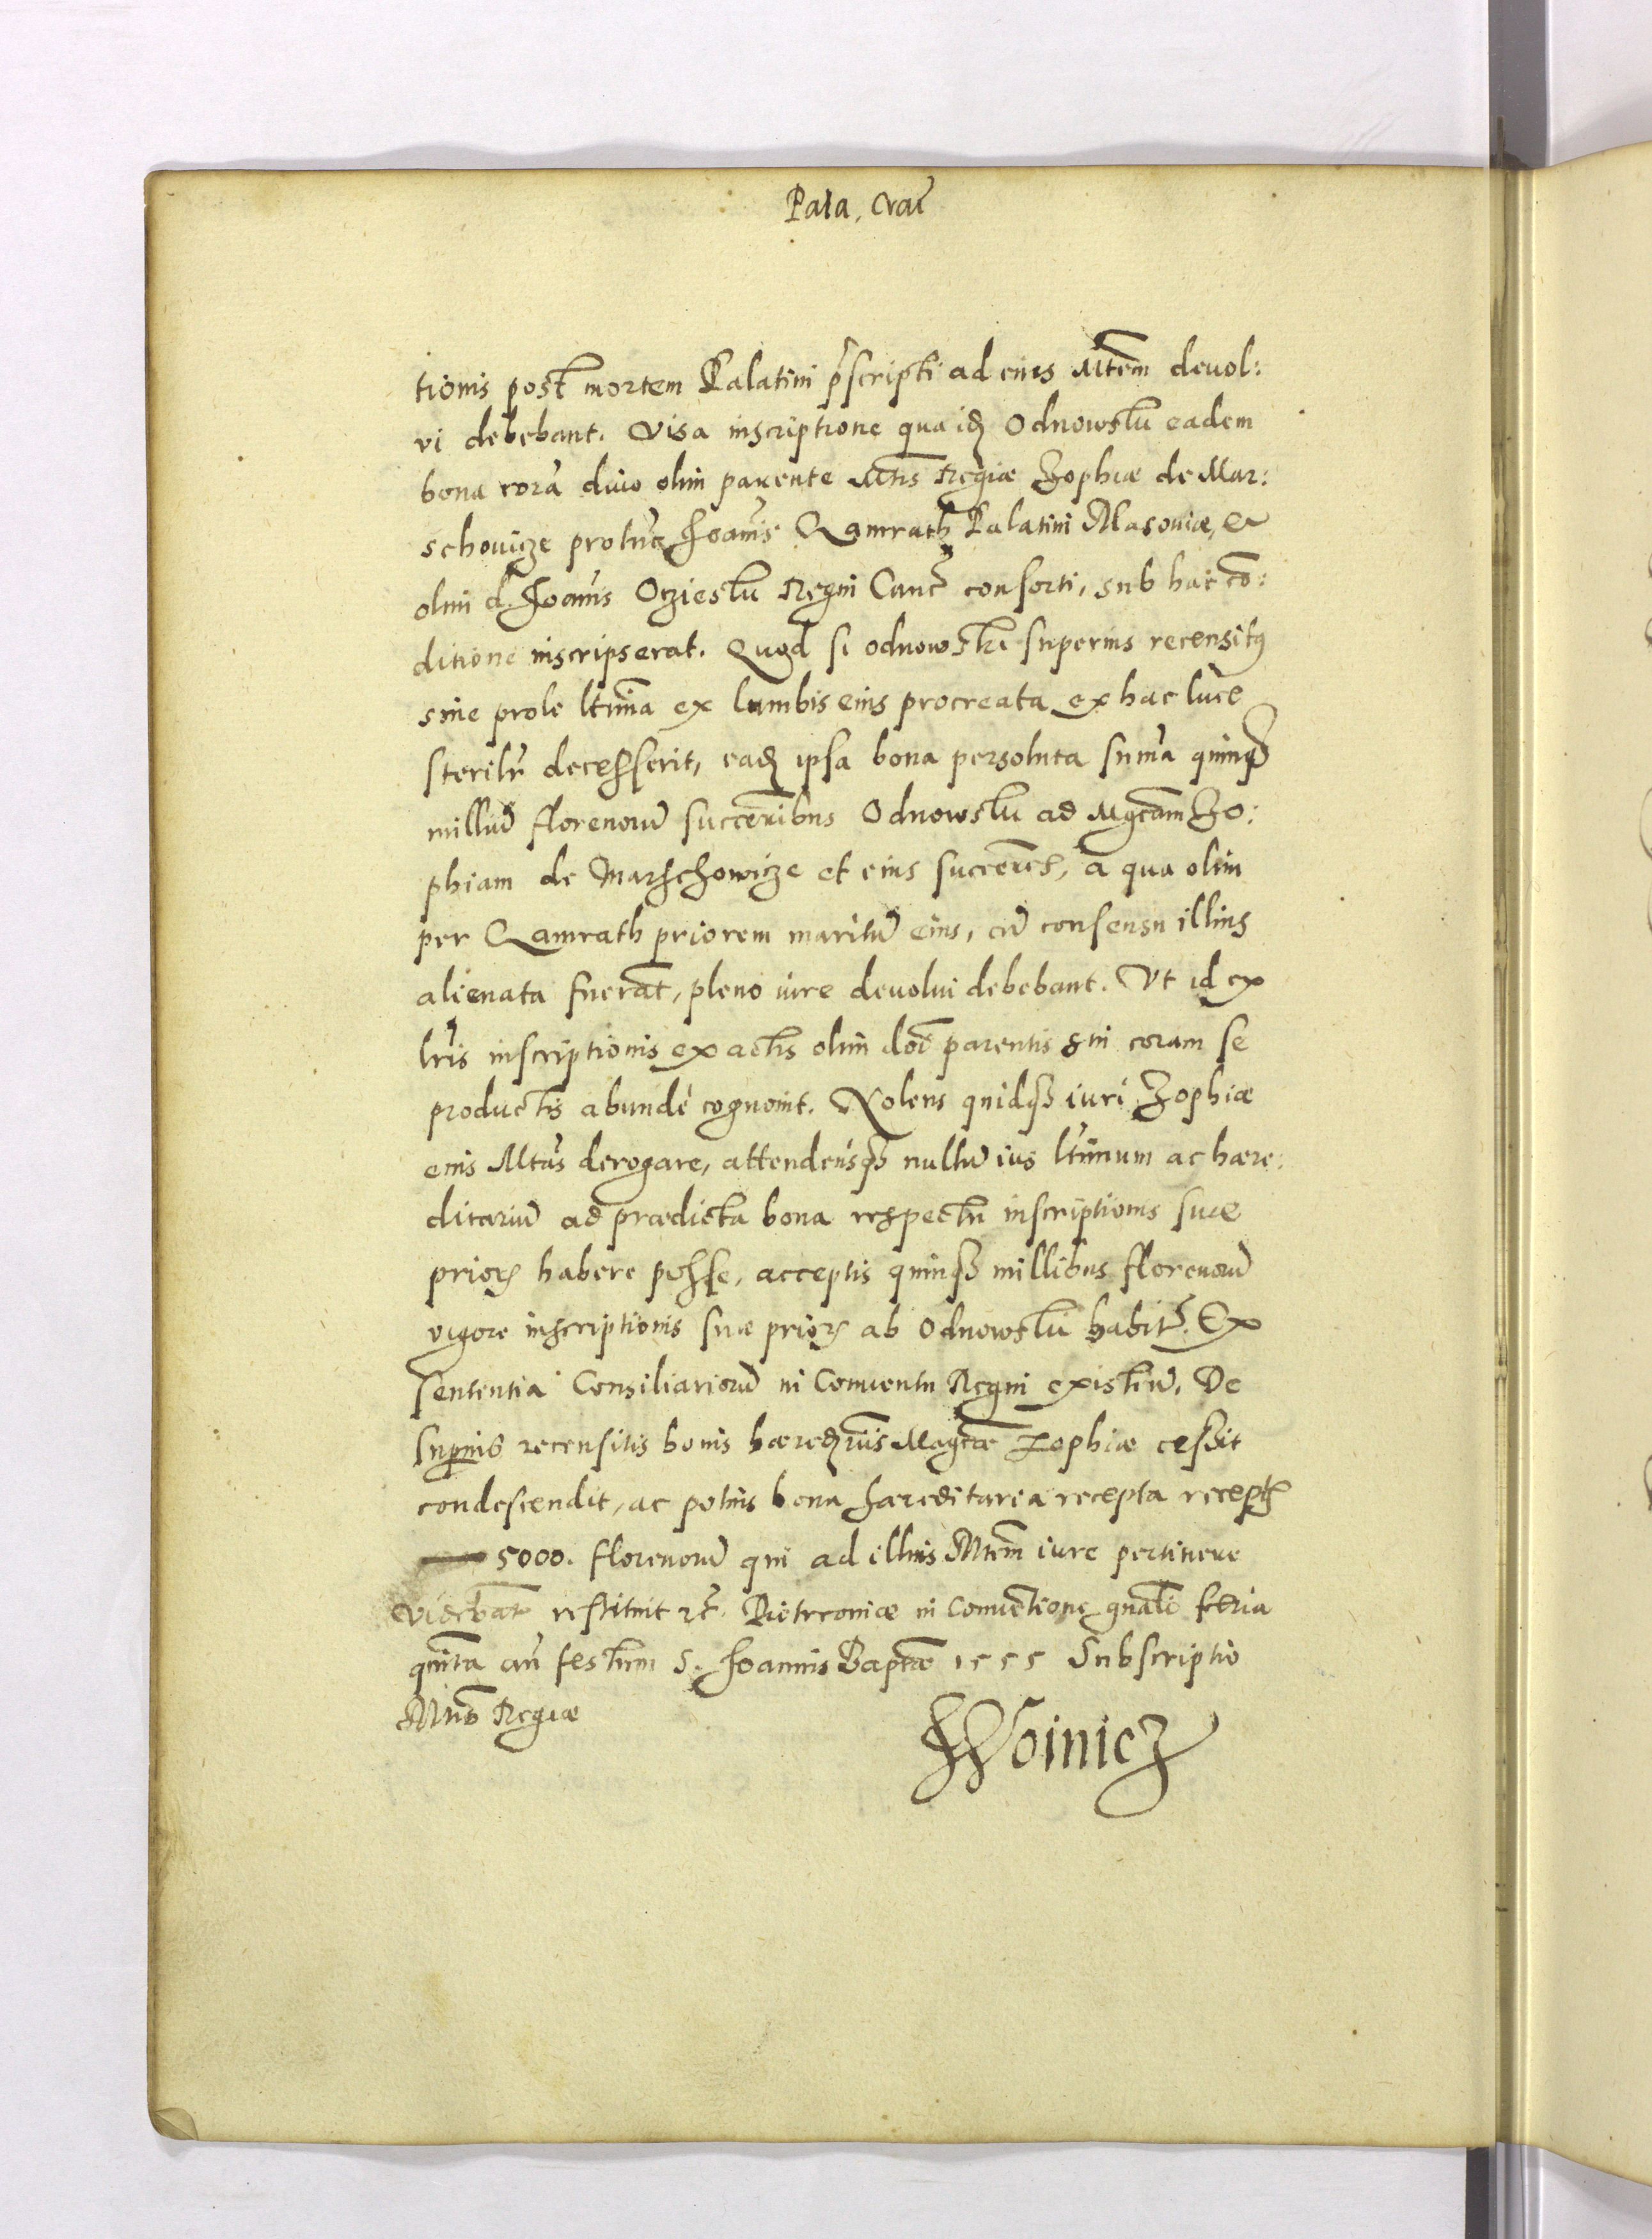 Pala. Craĉ
tionis post mortem Palatini p̃scripti ad eius Mtem̃ deuol:
vi debebant. Visa inscriptione qua idȝ Odnowsku eadem
bona corã diuo olim parente Mt̃is Regiæ Zophiæ de Mar:
schouicze protũc Joañis Qamrath Palatini Masouiæ, et
olim d. Joañis Oczieski Regni Canc̃ consorti, sub hac cõ:
ditione inscripserat. Quod si Odnowski superius recensitꝯ
sine prole ltĩma ex lumbis eius procreata ex hac luce
sterilr̃ decesserit, eadȝ ipsa bona persoluta sum̃a quinqȝ
milliũ florenorũ succẽribus Odnowski ad Mgcãm Zo:
phiam de Marschowicze et eius succẽres, a qua olim
per Qamrath priorem maritũ eius, cũ consensu illius
alienata fuerãt, pleno iure deuolui debebant. Vt id ex
lr̃is inscriptionis ex actis olim dõi parentis sui coram se
productis abundè cognouit. Nolens quidqȝ iuri Zophiæ
eius Mtas̃ derogare, attendensqȝ nullũ ius ltĩmum ac hære:
ditariũ ad prædicta bona respectu inscriptionis suæ
prioris habere posse, acceptis quinqȝ millibus florenorũ
vigore inscriptionis suæ prioris ab Odnowski habit̃. Ex
sententia Consiliariorũ in Conuentu Regni existen̄tiũ. De
superius recensitis bonis hæredr̃iis Magcæ Zophiæ cessit
condescendit, ac potius bona hæreditaria recepta recept̃
5000. florenorũ qui ad illius Mtem̃ iure pertinere
videbãt restituit ꝛc̃. Pietrcouiæ in Conuẽtione gnãli feria
quinta añ festum S. Joannis Baptæ 1555 Subscriptio
Mt̃is Regiæ
JWoinicz